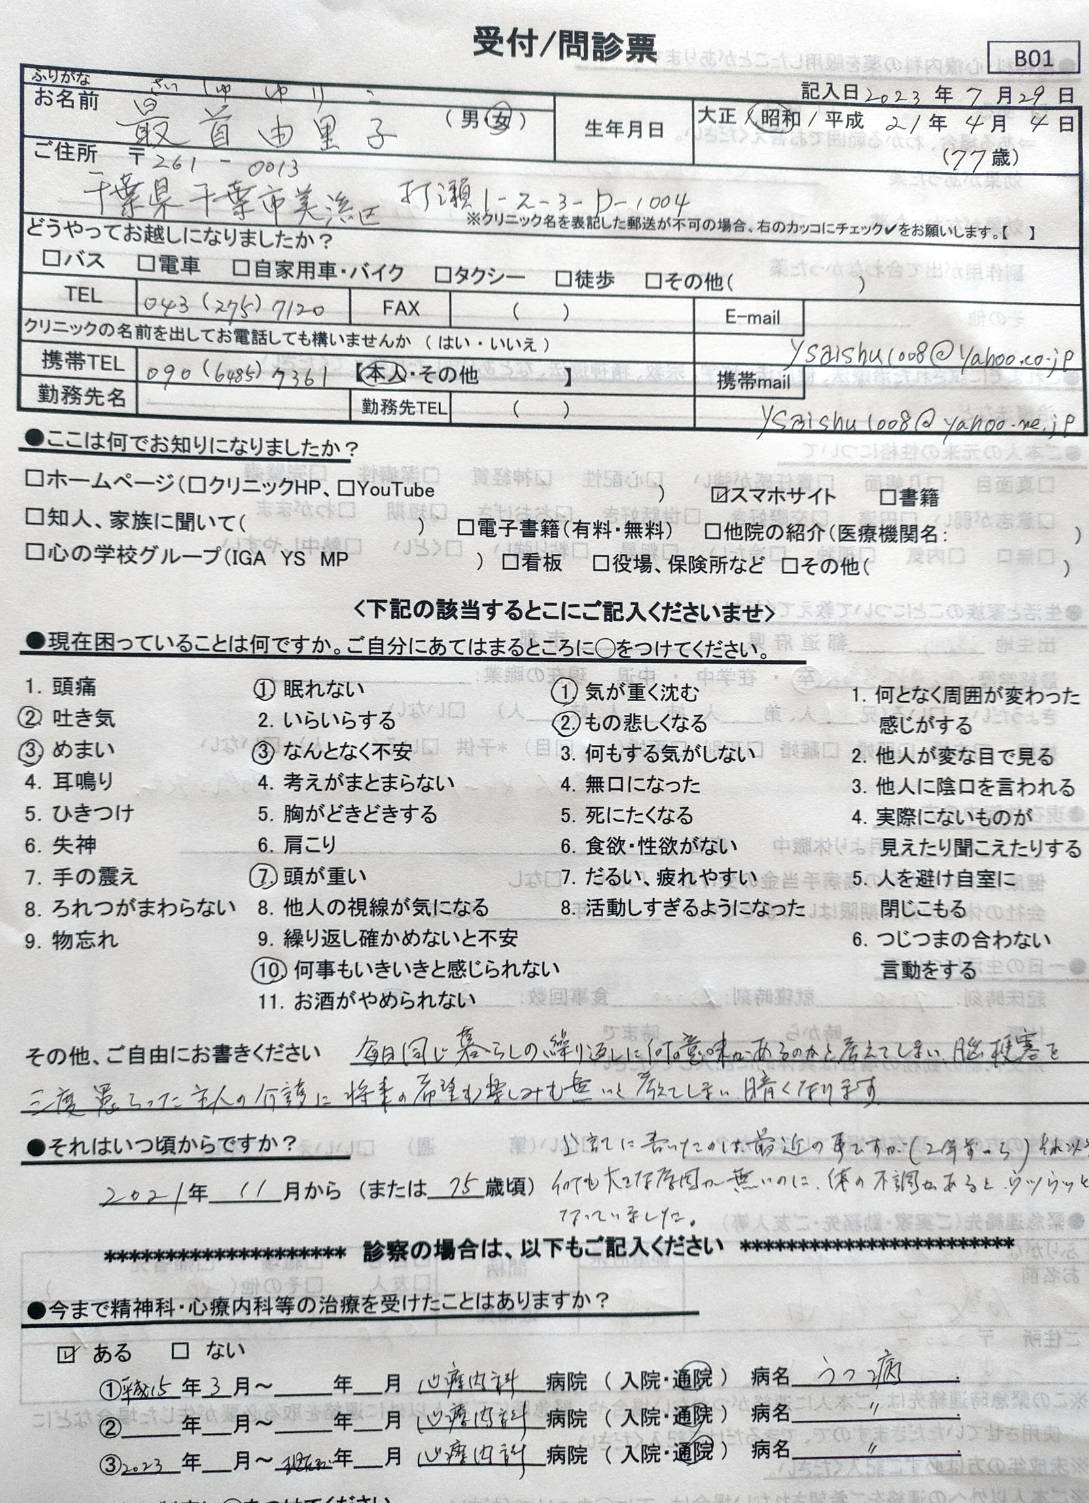 受付/問診票
B01
記入日2023 年 7 月 29 日
ふりがな さいしゅ ゆりこ
お名前 最首由里子 (男・女)
生年月日 大正 / 昭和 / 平成 21年 4月 4日
(77歳)
ご住所 〒261-0013
千葉県千葉市美浜区 打瀬1-2-3-D-1004
※クリニック名を表記した郵送が不可の場合、右のカッコにチェック✔をお願いします。【 】
どうやってお越しになりましたか?
□バス □電車 □自家用車・バイク □タクシー □徒歩 □その他( )
TEL 043 (275) 7120 FAX ( ) E-mail
クリニックの名前を出してお電話しても構いませんか (はい・いいえ)
ysaishu1008@yahoo.co.jp
携帯TEL 090 (6485) 7361 【本人・その他 】 携帯mail
勤務先名 勤務先TEL ( )
ysaishu1008@yahoo.ne.jp
●ここは何でお知りになりましたか?
□ホームページ(□クリニックHP、□YouTube ) ☑スマホサイト □書籍
□知人、家族に聞いて( ) □電子書籍(有料・無料) □他院の紹介(医療機関名: )
□心の学校グループ(IGA YS MP ) □看板 □役場、保険所など □その他( )
<下記の該当するとこにご記入くださいませ>
●現在困っていることは何ですか。ご自分にあてはまるところに○をつけてください。
1. 頭痛 ① 眠れない ① 気が重く沈む 1. 何となく周囲が変わった
② 吐き気 2. いらいらする ② もの悲しくなる 感じがする
③ めまい ③ なんとなく不安 3. 何もする気がしない 2. 他人が変な目で見る
4. 耳鳴り 4. 考えがまとまらない 4. 無口になった 3. 他人に陰口を言われる
5. ひきつけ 5. 胸がどきどきする 5. 死にたくなる 4. 実際にないものが
6. 失神 6. 肩こり 6. 食欲・性欲がない 見えたり聞こえたりする
7. 手の震え ⑦ 頭が重い 7. だるい、疲れやすい 5. 人を避け自室に
8. ろれつがまわらない 8. 他人の視線が気になる 8. 活動しすぎるようになった 閉じこもる
9. 物忘れ 9. 繰り返し確かめないと不安 6. つじつまの合わない
⑩ 何事もいきいきと感じられない 言動をする
11. お酒がやめられない
その他、ご自由にお書きください 毎日同じ暮らしの繰り返しに何の意味があるのかと考えてしまい、脳梗塞を
三度患らった主人の介護に将来の希望も楽しみも無いと考えてしまい暗くなります
●それはいつ頃からですか?
上記に書いたのは最近の事ですが(2年前から)それ以
2021年 11月から (または 75歳頃)
何も大きな原因が無いのに、体の不調があると、ウツウツと
なっていました。
******************** 診察の場合は、以下もご記入ください ************************
●今まで精神科・心療内科等の治療を受けたことはありますか?
☑ ある □ ない
①平成15年3月~ 年 月 心療内科 病院 (入院・通院) 病名 うつ病
② 年 月~ 年 月 心療内科 病院 (入院・通院) 病名 〃
③2023年 月~現在 年 月 心療内科 病院 (入院・通院) 病名 〃